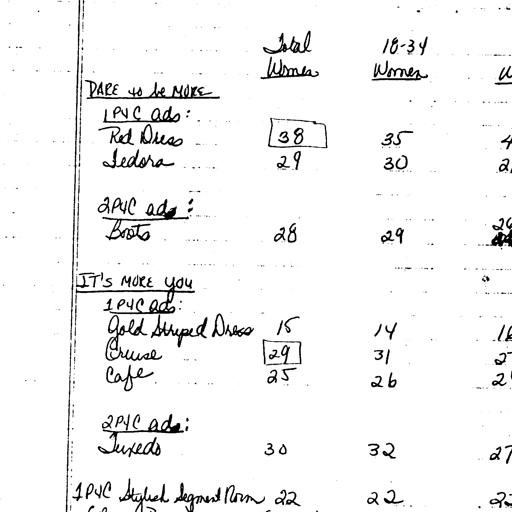 Total 18-34
Women Women W
DARE to be MORE
1P4C ads:
Red Dress 38 35 4
Fedora 29 30 2
2P4C ads:
Boots 28 29 26
IT'S MORE YOU
1P4C ads:
Gold Striped Dress 15 14 16
Cruise 29 31 2
Cafe 25 26 2
2P4C ads:
Tuxedo 30 32 27
1P4C Stylish Segment Norm 22 22 22